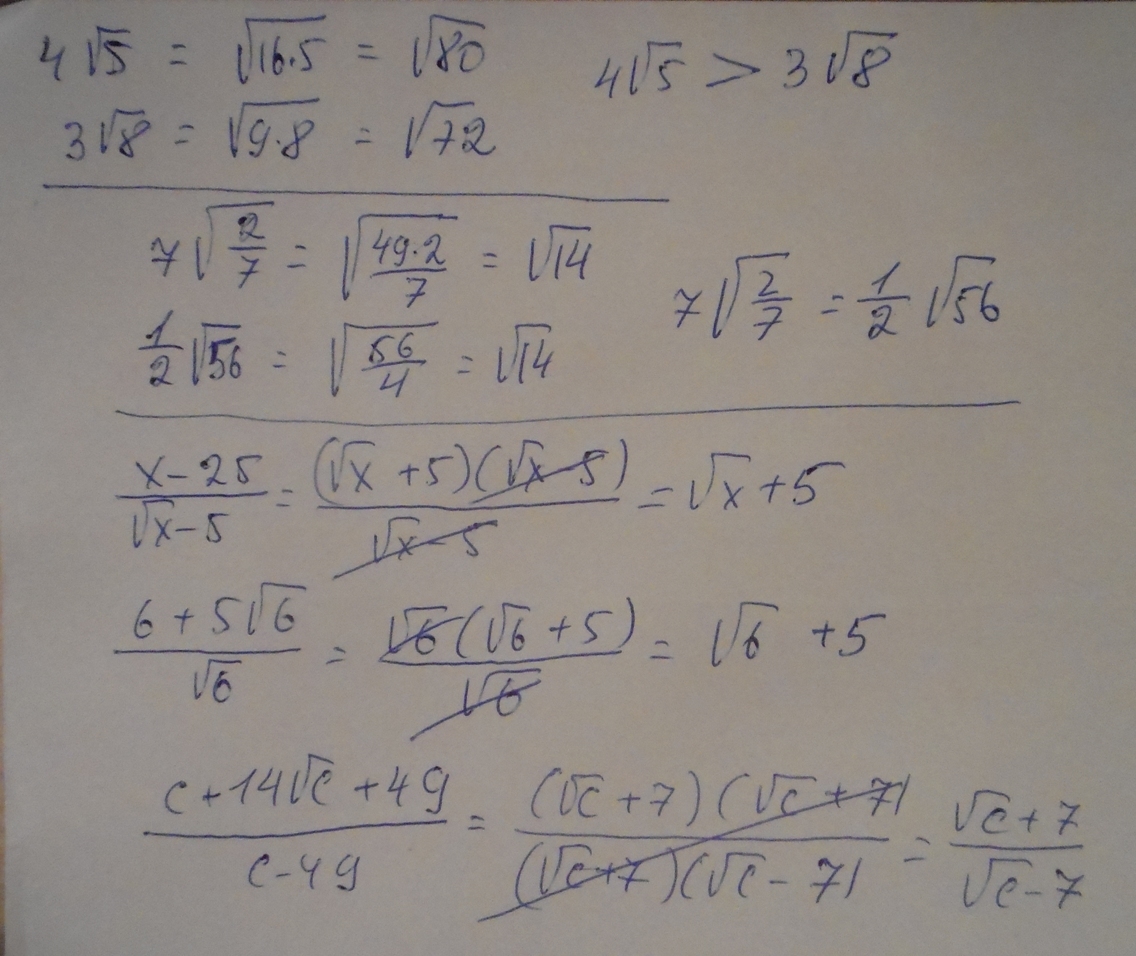 4√5 = √16·5 = √80    4√5 > 3√8
3√8 = √9·8 = √72
7√(2/7) = √(49·2/7) = √14    7√(2/7) = 1/2 √56
1/2 √56 = √(56/4) = √14
(x-25)/(√x-5) = (√x+5)(√x-5)/(√x-5) = √x+5
(6+5√6)/√6 = √6(√6+5)/√6 = √6 +5
(c+14√c+49)/(c-49) = (√c+7)(√c+7)/(√c+7)(√c-7) = (√c+7)/(√c-7)